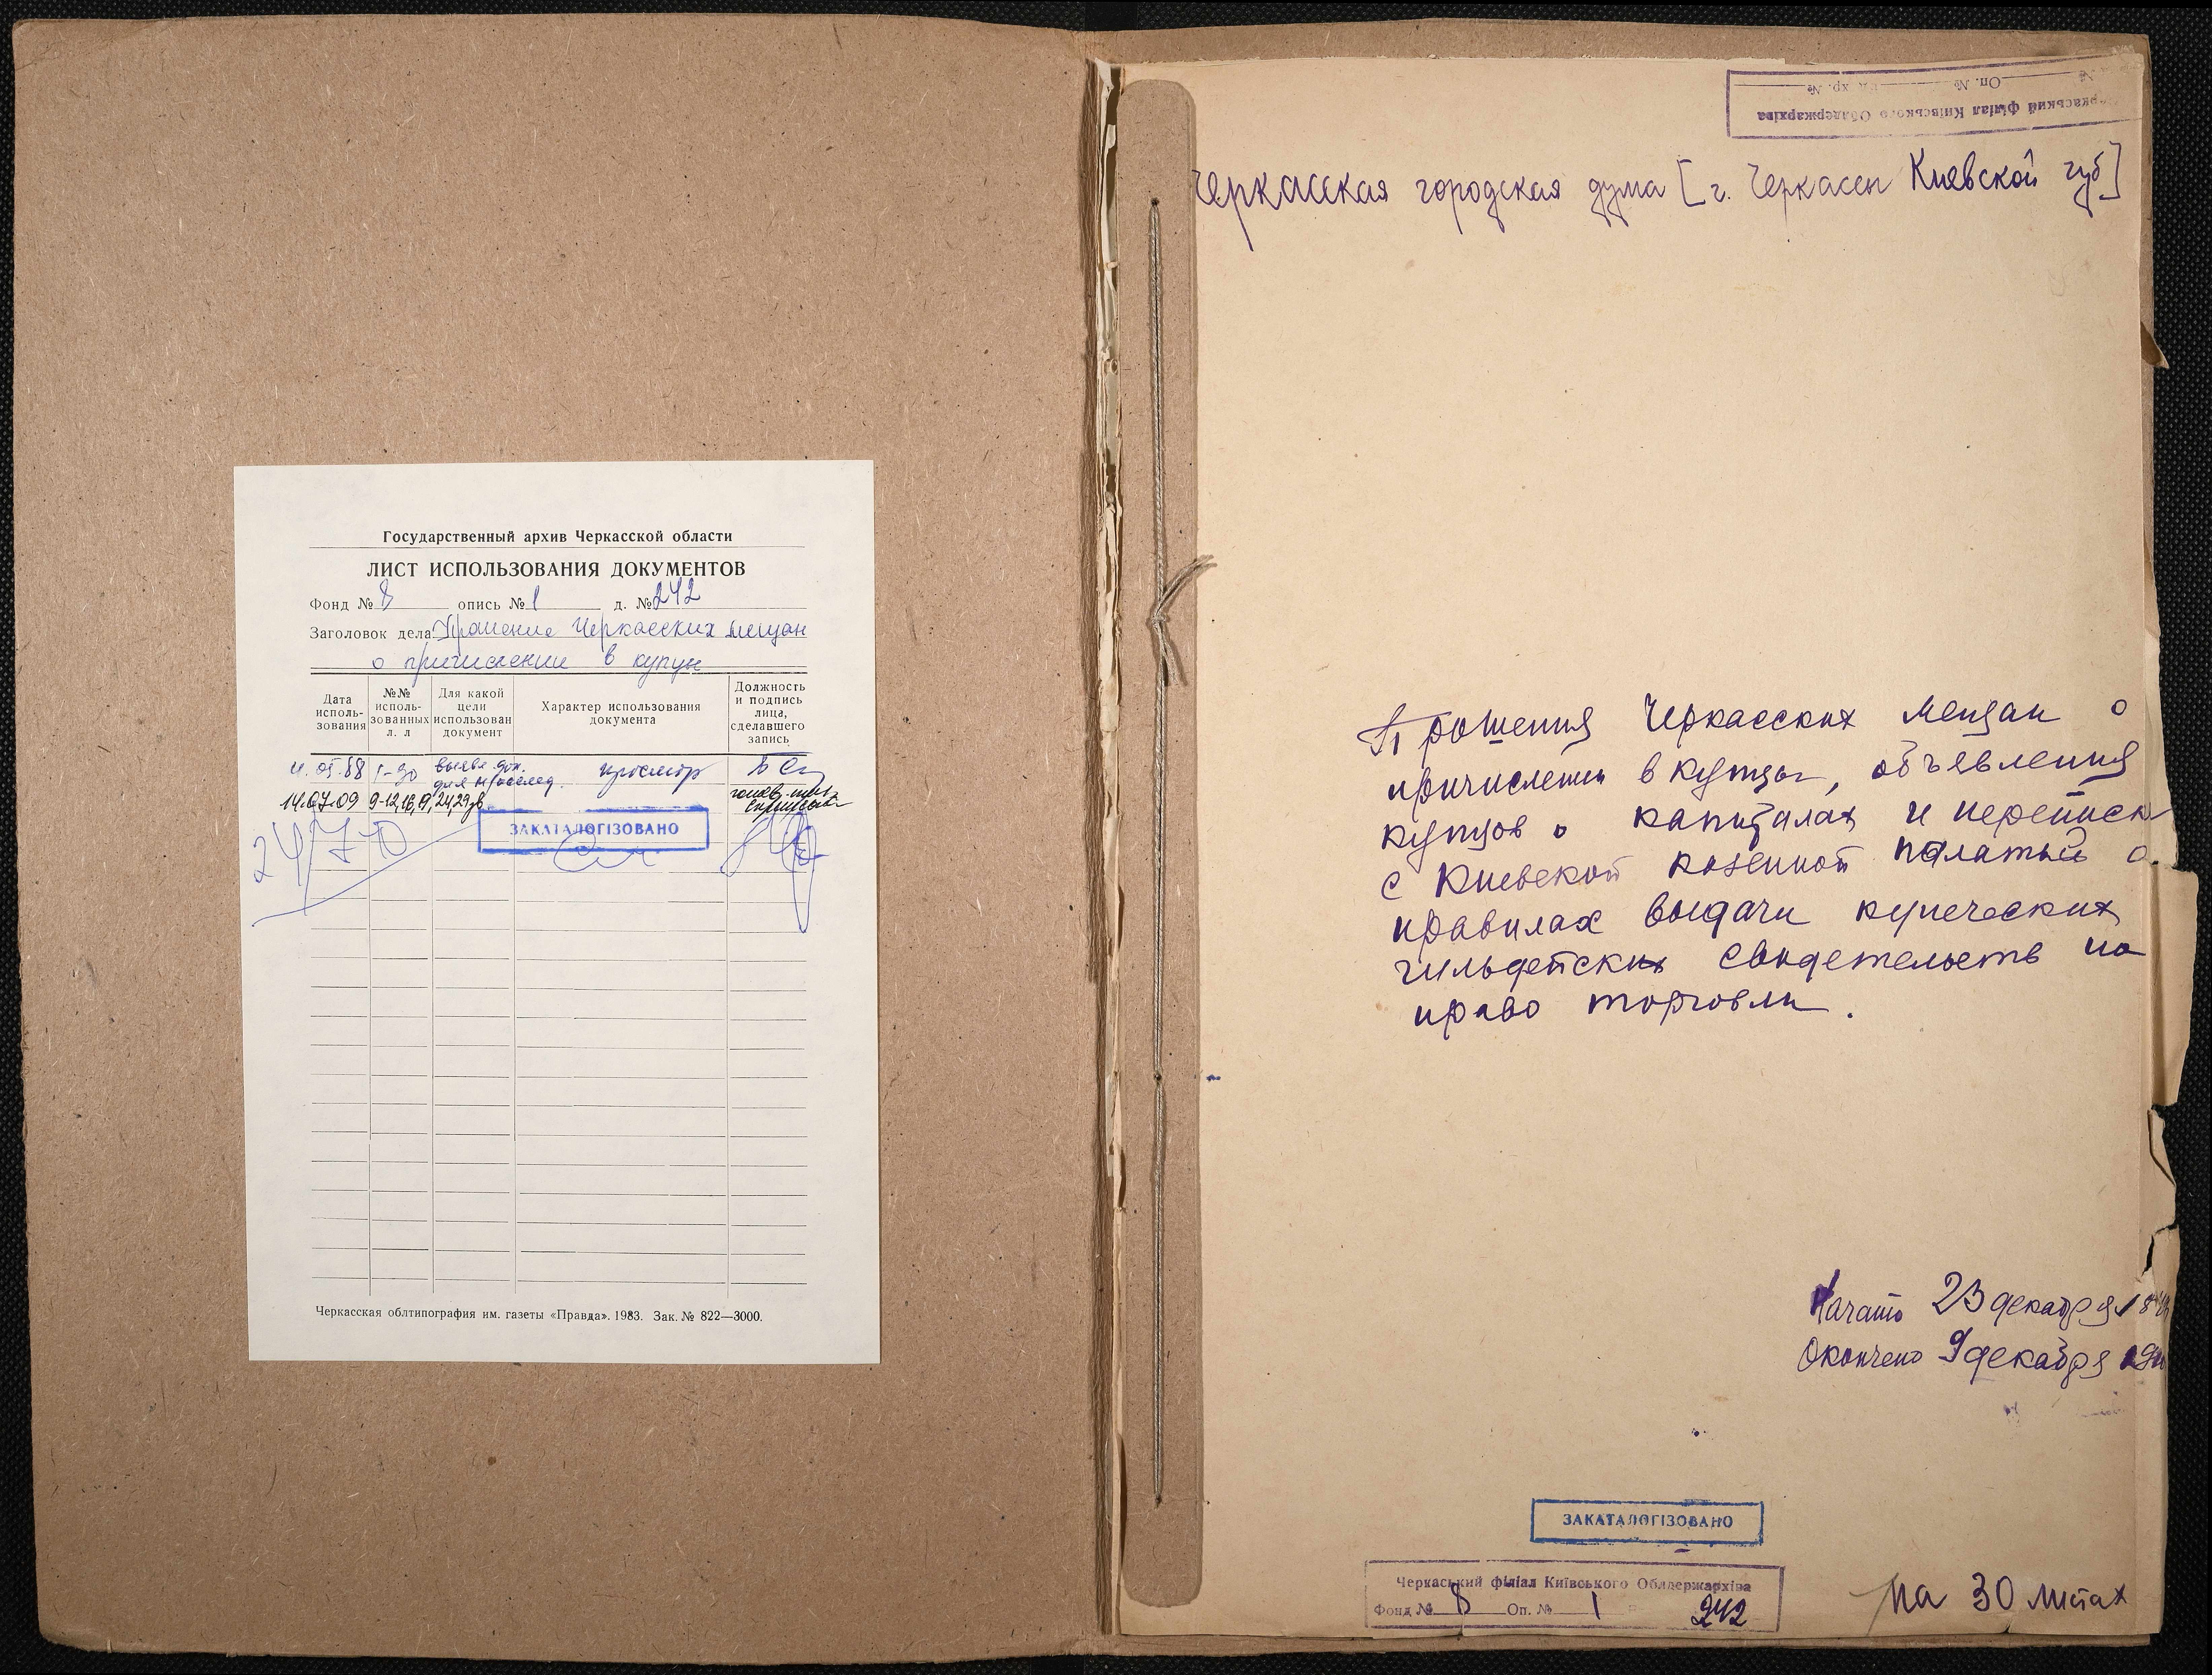 Государственный архив Черкасской области
ЛИСТ ИСПОЛЬЗОВАНИЯ ДОКУМЕНТОВ
Фонд № 8 опись № 1 д. № 242
Заголовок дела: Прошение Черкасских мещан
о причислении в купцы
Дата исполь-зования
№№ исполь-зованных л. л
Для какой цели использован документ
Характер использования документа
Должность и подпись лица, сделавшего запись
05.88 1-30 выявл. док. для просмотр
14.07.09 9-12, 16, 19, 24, 29
ЗАКАТАЛОГІЗОВАНО
Черкасская облтипография им. газеты «Правда». 1983. Зак. № 822—3000.
Черкаський філіал Київського Облдержархіва
Оп. № хр. №
Черкасская городская дума [г. Черкассы Киевской губ]
Прошения Черкасских мещан о
причислении в купцы, объявления
купцов о капиталах и переписк
с Киевской казенной палатой о
правилах выдачи купеческих
гильдейских свидетельств на
право торговли.
Начато 23 декабря
Окончено 9 декабря
ЗАКАТАЛОГІЗОВАНО
Черкаський філіал Київського Облдержархіва
Фонд № 8 Оп. № 1 242
На 30 листах